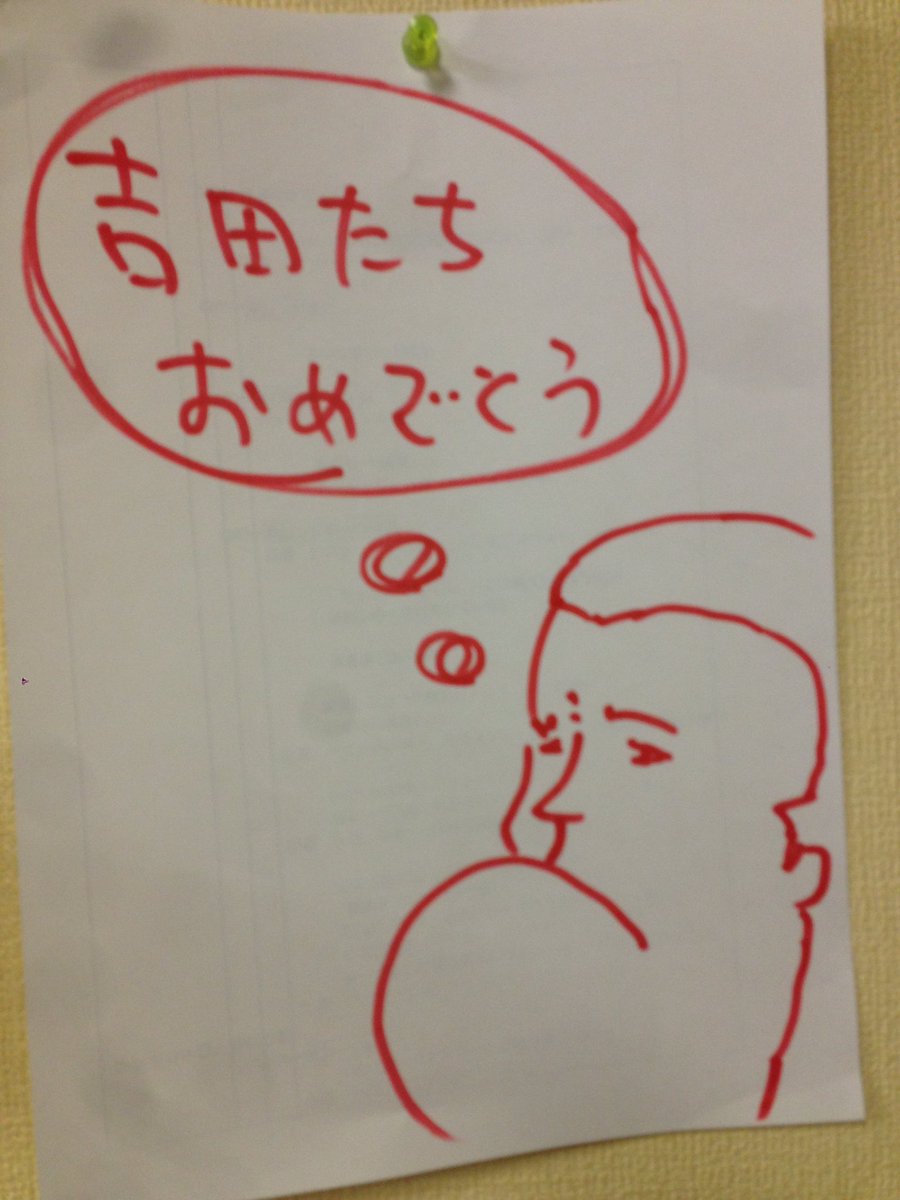 吉田たち
おめでとう